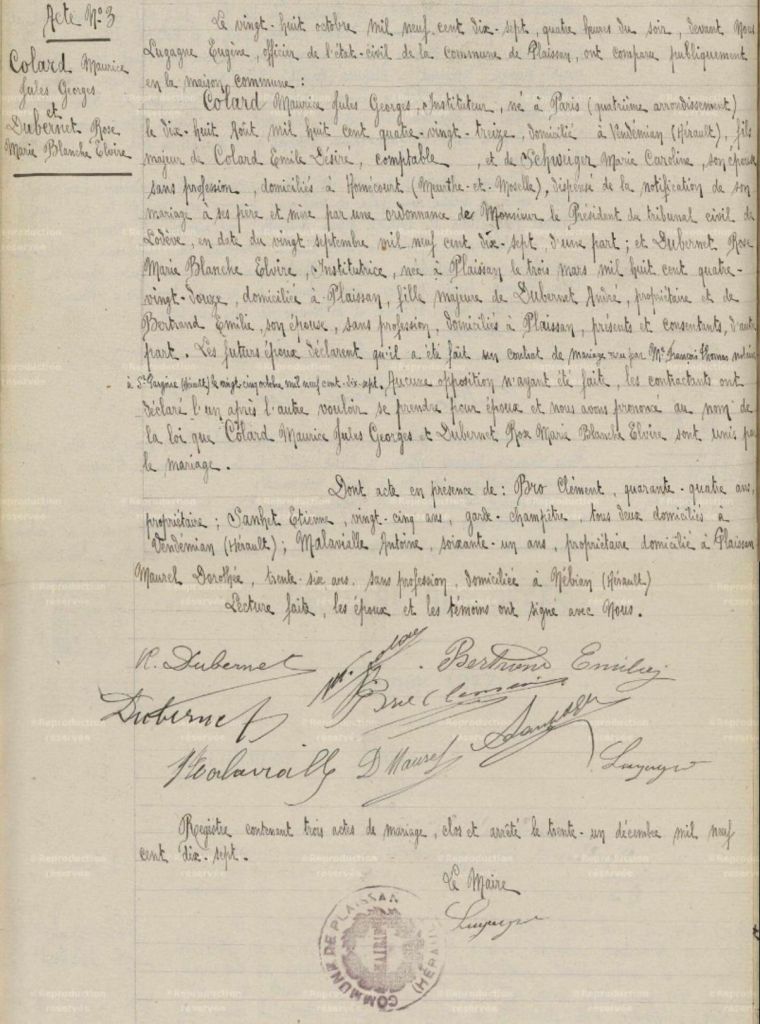 Acte N° 3
Colard Maurice
Jules Georges
et
Dubernet Rose
Marie Blanche Elvire
Le vingt-huit octobre mil neuf cent dix-sept, quatre heures du soir, devant Nous
Lugagne Eugène, officier de l'état-civil de la commune de Plaissan, ont comparu publiquement
en la maison commune :
Colard Maurice Jules Georges, Instituteur, né à Paris (quatrième arrondissement)
le dix-huit Août mil huit cent quatre-vingt-treize, domicilié à Vendémian (Hérault), fils
majeur de Colard Emile Désiré, comptable, et de Schweiger Marie Caroline, son épouse
sans profession, domiciliés à Homécourt (Meurthe-et-Moselle), dispensé de la notification de son
mariage à ses père et mère par une ordonnance de Monsieur le Président du tribunal civil de
Lodève, en date du vingt septembre mil neuf cent dix-sept, d'une part ; et Dubernet Rose
Marie Blanche Elvire, Institutrice, née à Plaissan le trois mars mil huit cent quatre-
vingt-douze, domiciliée à Plaissan, fille majeure de Dubernet André, propriétaire et de
Bertrand Emilie, son épouse, sans profession, domiciliés à Plaissan, présents et consentants, d'autre
part. Les futurs époux déclarent qu'il a été fait un contrat de mariage reçu par Me François Thomas notaire
à St Pargoire (Hérault) le vingt-cinq octobre mil neuf cent-dix-sept. Aucune opposition n'ayant été faite, les contractants ont
déclaré l'un après l'autre vouloir se prendre pour époux et nous avons prononcé au nom de
la loi que Colard Maurice Jules Georges et Dubernet Rose Marie Blanche Elvire sont unis par
le mariage.
Dont acte en présence de : Bro Clément, quarante-quatre ans,
propriétaire ; Sanhet Etienne, vingt-cinq ans, garde-champêtre, tous deux domiciliés à
Vendémian (Hérault) ; Malavialle Antoine, soixante-un ans, propriétaire domicilié à Plaissan
Maurel Dorothée, trente-six ans, sans profession, domiciliée à Nébian (Hérault)
Lecture faite, les époux et les témoins ont signé avec Nous.
R. Dubernet
Bertrand Emilie
Bro Clément
Dubernet
Malavialle D Maurel
Lugagne
Registre contenant trois actes de mariage, clos et arrêté le trente-un décembre mil neuf
cent dix-sept.
Le Maire
Lugagne
COMMUNE DE PLAISSAN
MAIRIE
(HÉRAULT)
©Reproduction
réservée